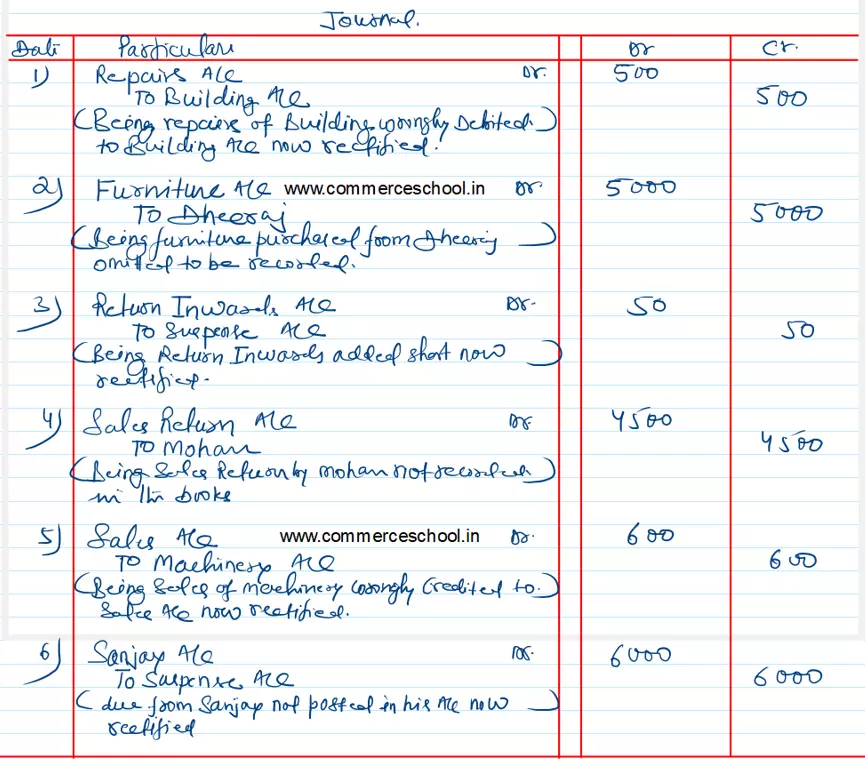 Journal.
Date Particulars Dr Cr.
1) Repairs A/c Dr. 500
To Building A/c 500
(Being repairs of Building wrongly Debited)
to Building A/c now rectified.
2) Furniture A/c www.commerceschool.in Dr. 5000
To Dheeraj 5000
(Being furniture purchased from Dheeraj)
omitted to be recorded.
3) Return Inwards A/c Dr. 50
To Suspense A/c 50
(Being Return Inwards added short now)
rectified.
4) Sales Return A/c Dr. 4500
To Mohan 4500
(Being Sales Return by Mohan not recorded)
in the books
5) Sales A/c www.commerceschool.in Dr. 600
To Machinery A/c 600
(Being Sales of machinery wrongly Credited to.)
Sales A/c now rectified.
6) Sanjay A/c Dr. 6000
To Suspense A/c 6000
(due from Sanjay not posted in his A/c now)
rectified